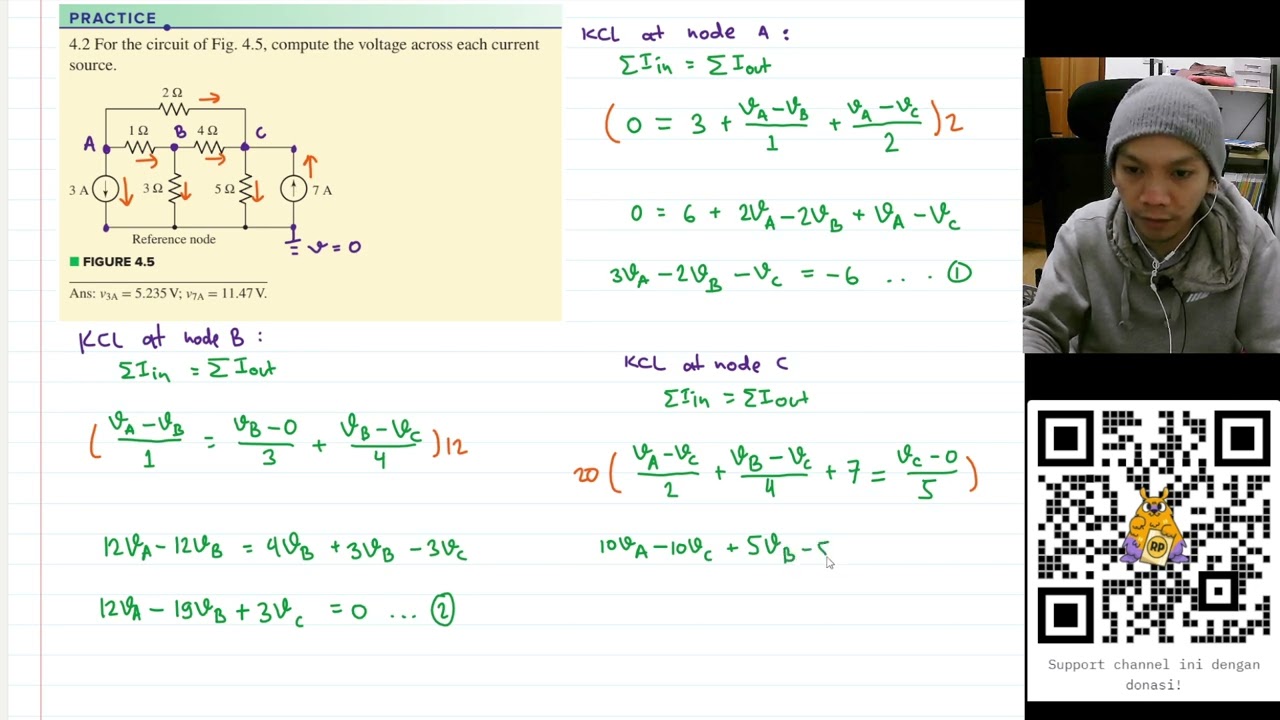 PRACTICE
4.2 For the circuit of Fig. 4.5, compute the voltage across each current
source.
2 Ω
A 1 Ω B 4 Ω C
3 A 3 Ω 5 Ω 7 A
Reference node
v = 0
FIGURE 4.5
Ans: v3A = 5.235 V; v7A = 11.47 V.
KCL at node A :
ΣIin = ΣIout
( 0 = 3 + (vA − vB)/1 + (vA − vC)/2 ) 2
0 = 6 + 2vA − 2vB + vA − vC
3vA − 2vB − vC = −6 ... . ①
KCL at node B :
ΣIin = ΣIout
( (vA − vB)/1 = (vB − 0)/3 + (vB − vC)/4 ) 12
12vA − 12vB = 4vB + 3vB − 3vC
12vA − 19vB + 3vC = 0 ... ②
KCL at node C
ΣIin = ΣIout
20 ( (vA − vC)/2 + (vB − vC)/4 + 7 = (vC − 0)/5 )
10vA − 10vC + 5vB − 5
RP
Support channel ini dengan
donasi!